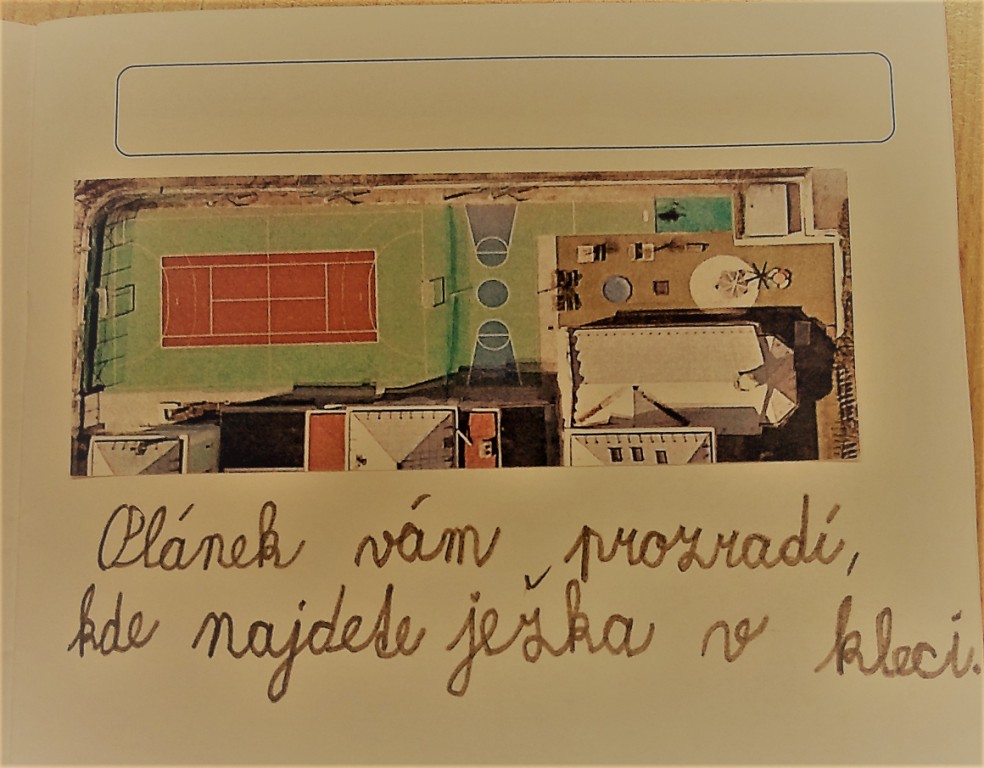 Plánek vám prozradí,
kde najdete ježka v kleci.